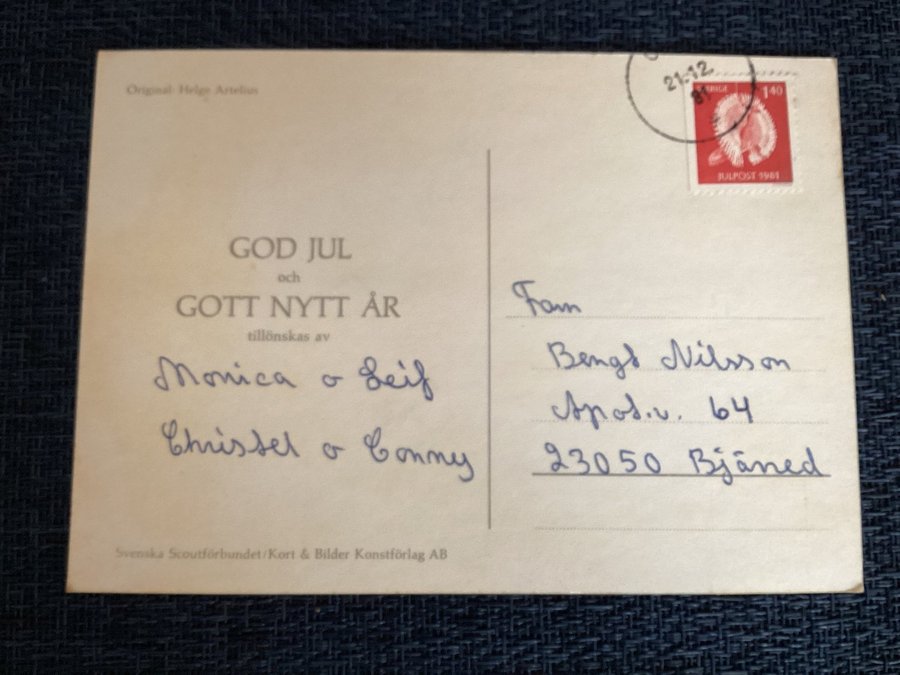 Original Helge Artelius
21.12.
81
SVERIGE 1 40
JULPOST 1981
GOD JUL
och
GOTT NYTT ÅR
tillönskas av
Monica o Leif
Christel o Conny
Fam
Bengt Nilsson
Apot.v. 64
23050 Bjäred
Svenska Scoutförbundet/Kort & Bilder Konstförlag AB